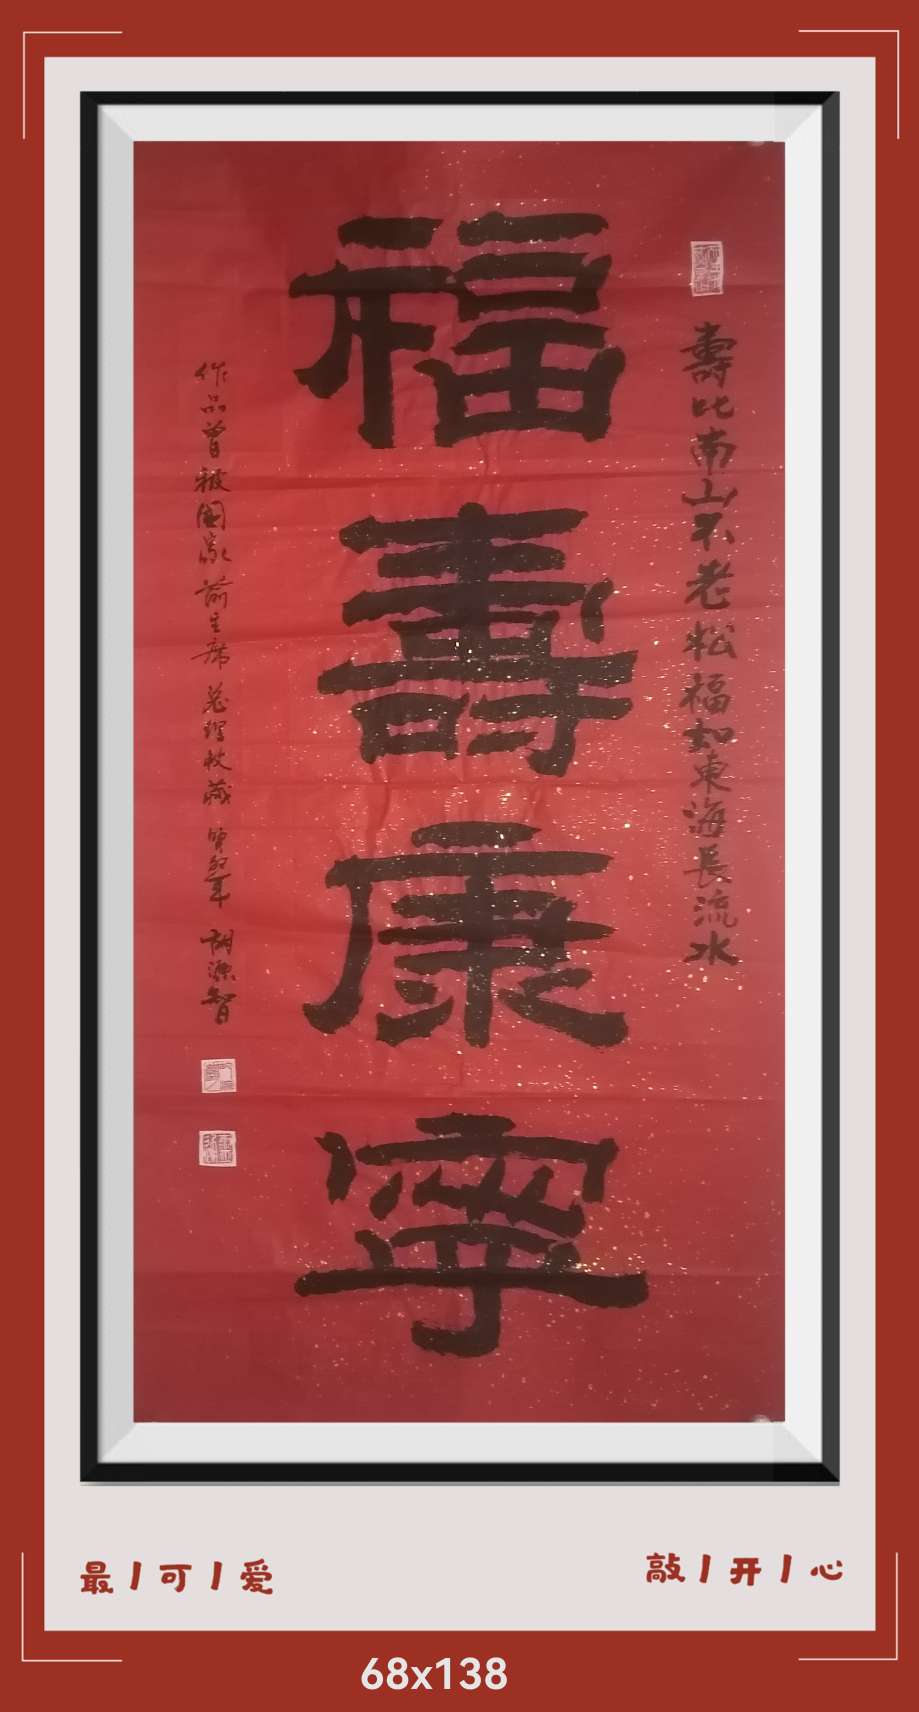 壽比南山不老松福如東海長流水
福壽康寧
作品曾被國家前主席 总理收藏 年 胡源智
最丨可丨爱
敲丨开丨心
68x138